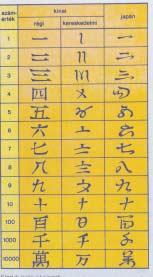 szám-érték kínai japán
régi kereskedelmi
1 一 〡 一
2 二 〢 二
3 三 〣 三
4 四 〤
5 五 〥 五
6 六 〦 六
7 七 〧 七
8 八 〨 八
9 九 〩 九
10 十 十 十
100 百
1000 千 千 千
10000 萬 万